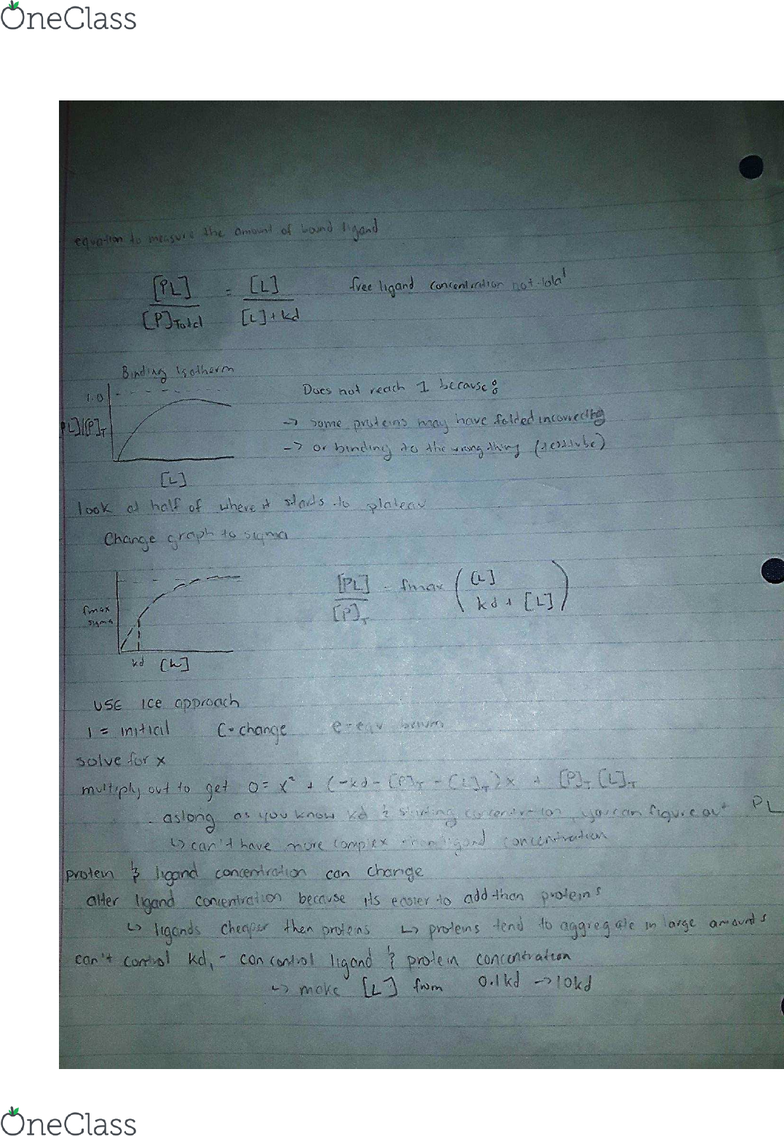 OneClass
equation to measure the amount of bound ligand
[PL] / [P]Total = [L] / [L]+kd free ligand concentration not total
Binding Isotherm
1.0
Does not reach 1 because:
PL]/[P]T
-> some proteins may have folded incorrectly
-> or binding to the wrong thing
[L]
look at half of where it starts to plateau
Change graph to sigma
fmax
sigma
[PL] / [P]T - fmax ([L] / kd + [L])
kd [L]
USE ice approach
I = initial C-change e-equilibrium
solve for x
multiply out to get 0= x² + (-kd - [P]T - [L]T)x + [P]T [L]T
- aslong as you know kd & starting concentration, you can figure out PL
↳ can't have more complex than ligand concentration
protein & ligand concentration can change
alter ligand concentration because its easier to add than proteins
↳ ligands cheaper then proteins ↳ proteins tend to aggregate in large amounts
can't control kd, - can control ligand & protein concentration
↳ make [L] from 0.1kd -> 10kd
OneClass